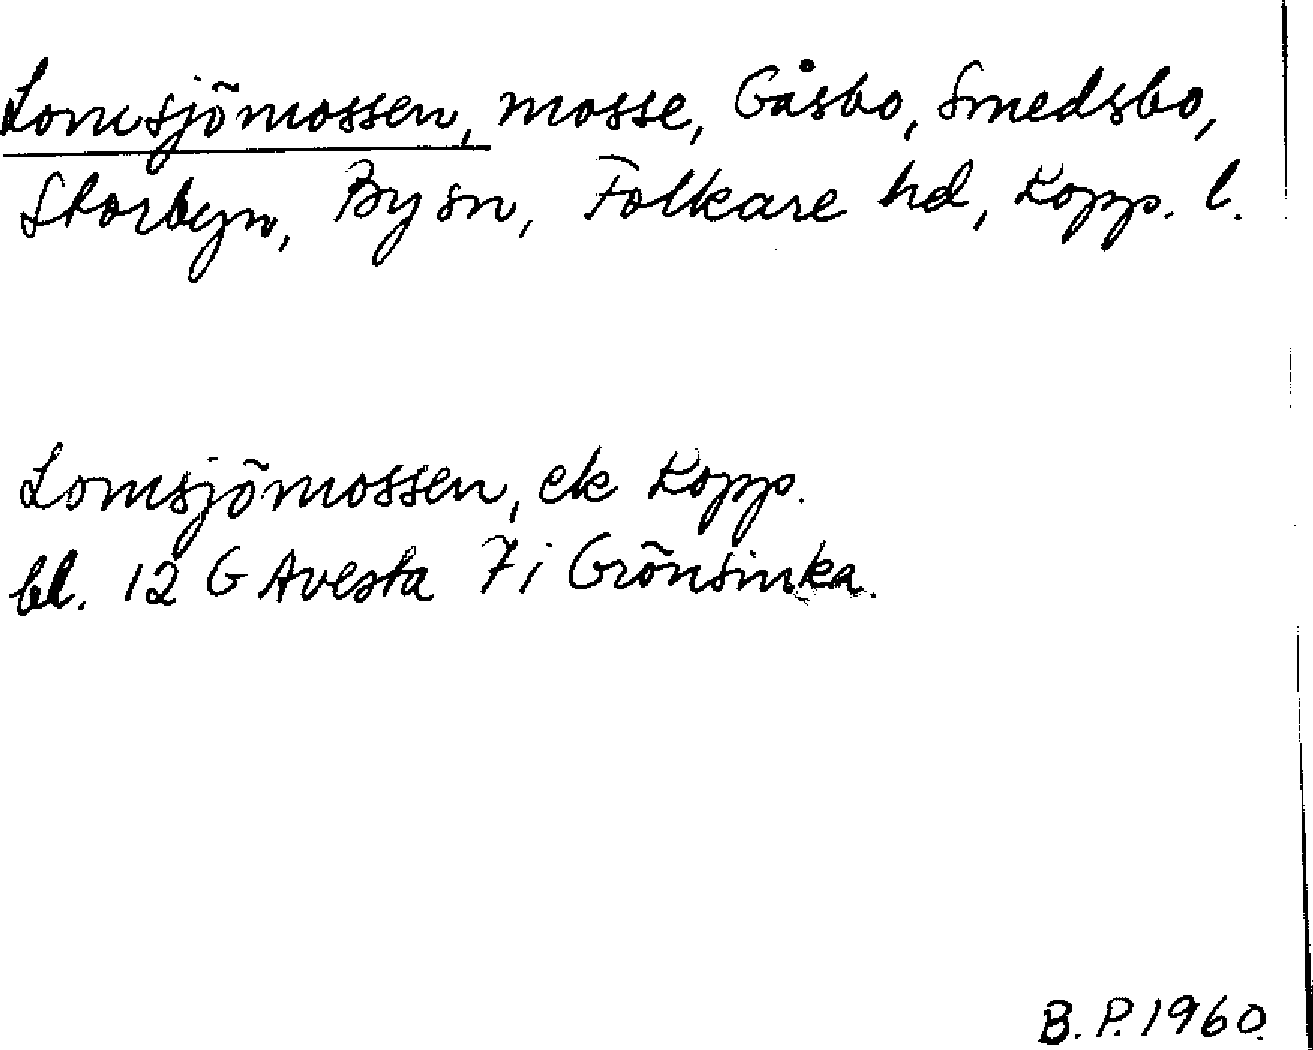 Lomsjömossen, mosse, Gåsbo, Smedsbo,
Storbyn, By sn, Folkare hd, Kopp. l.
Lomsjömossen, ek Kopp.
bl. 12 G Avesta 7i Grönsinka.
B.P. 1960.